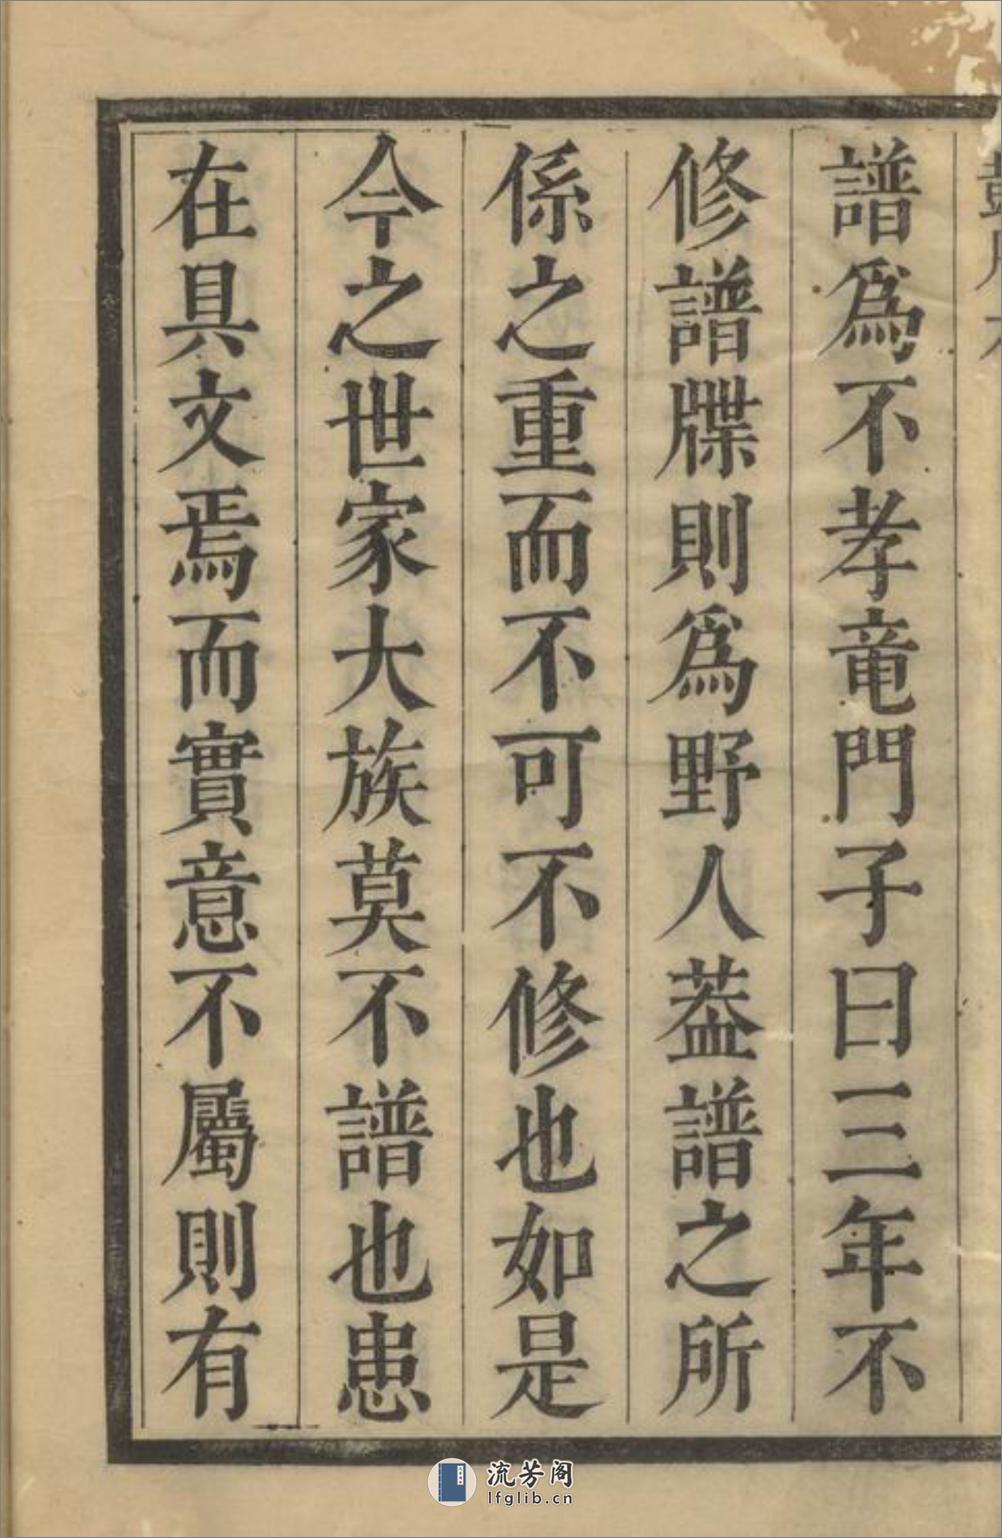 譜爲不孝竜門子曰三年不
修譜牒則爲野人葢譜之所
係之重而不可不修也如是
今之世家大族莫不譜也患
在具文焉而實意不屬則有
流芳阁
lfglib.cn